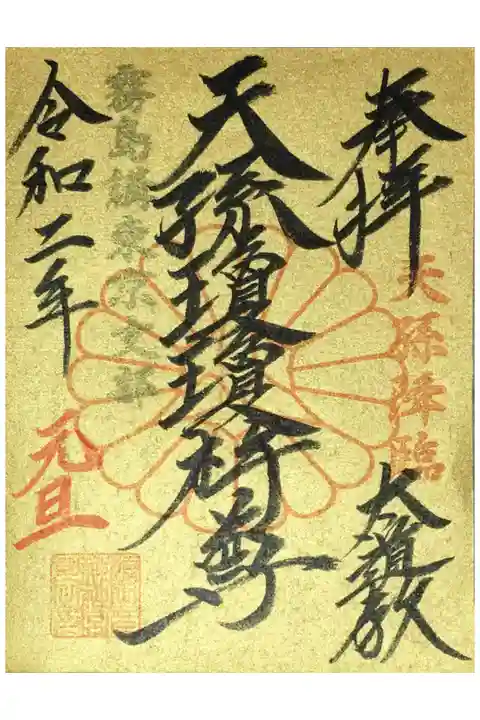 奉拝
天孫降臨
大道教
天孫瓊瓊杵尊
霧島講東京支部
令和二年
元旦